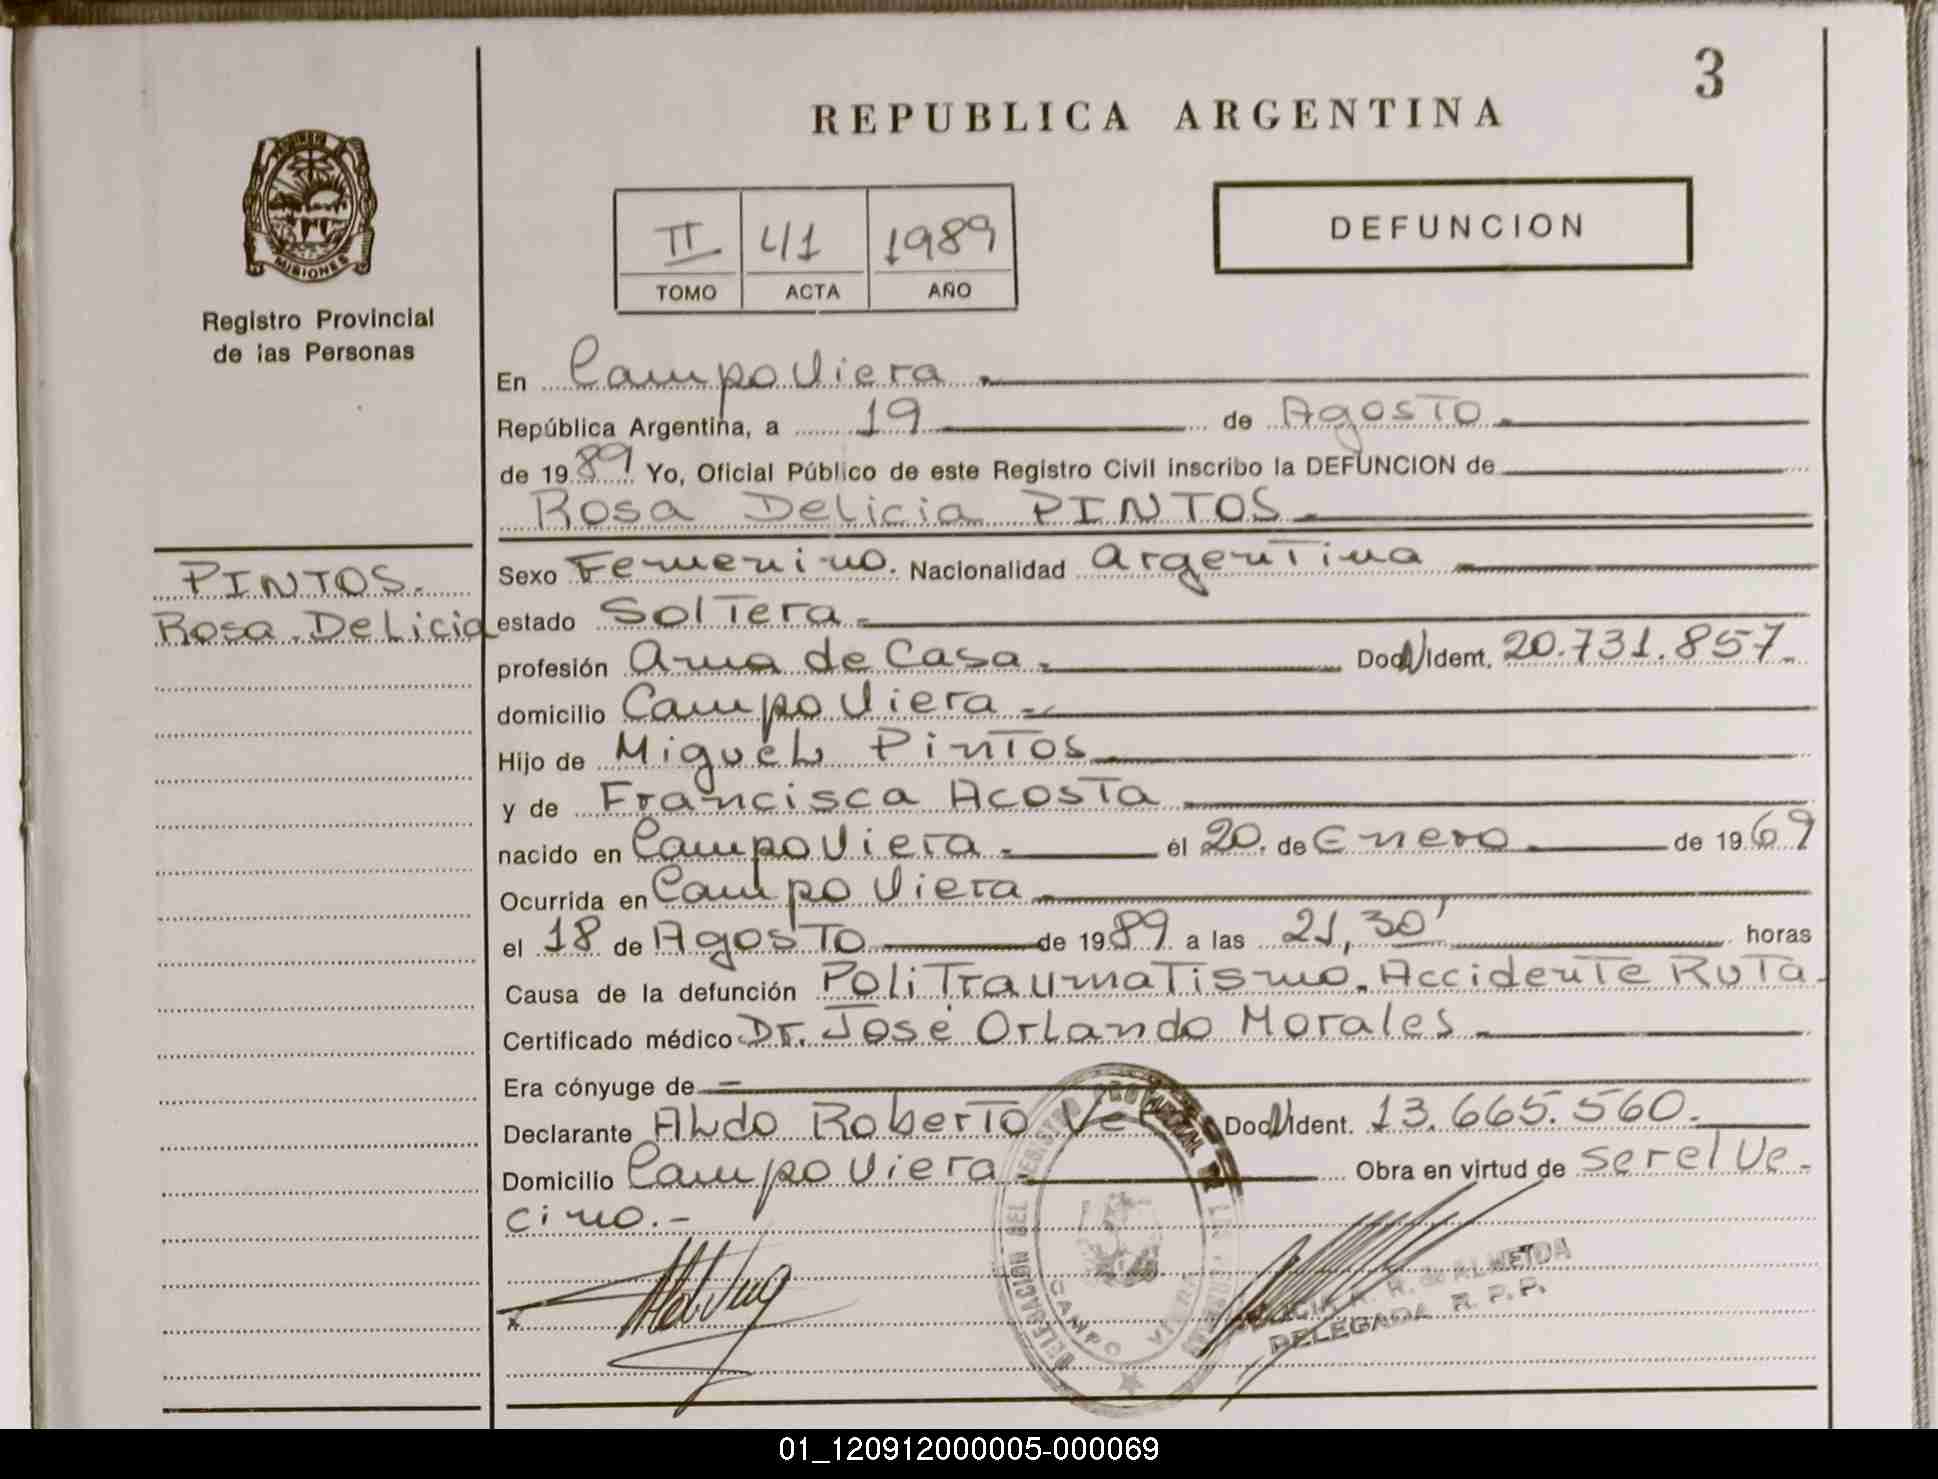 3
REPUBLICA ARGENTINA
MISIONES
Registro Provincial
de las Personas
II 41 1989
TOMO ACTA AÑO
DEFUNCION
En Campo Viera
República Argentina, a 19 de Agosto
de 1989 Yo, Oficial Público de este Registro Civil inscribo la DEFUNCION de
Rosa Delicia PINTOS
PINTOS.
Rosa Delicia
Sexo Femenino. Nacionalidad Argentina
estado Soltera
profesión Ama de Casa Doc N Ident. 20.731.857
domicilio Campo Viera
Hijo de Miguel Pintos
y de Francisca Acosta
nacido en Campo Viera él 20 de Enero de 1969
Ocurrida en Campo Viera
el 18 de Agosto de 1989 a las 21,30' horas
Causa de la defunción PoliTraumatismo. Accidente Ruta.
Certificado médico Dr. José Orlando Morales
Era cónyuge de
Declarante Aldo Roberto Doc N Ident. 13.665.560.
Domicilio Campo Viera Obra en virtud de ser el Ve-
cino.-
DELEGACION DEL REGISTRO PROVINCIAL DE LAS
CAMPO VIERA
R. de ALMEIDA
DELEGADA R. P. P.
01_120912000005-000069